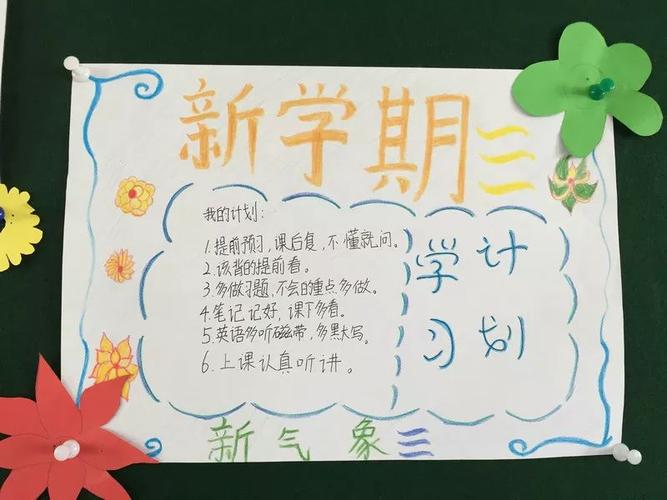 新学期
我的计划:
1.提前预习,课后复,不懂就问。
2.该背的提前看。
3.多做习题,不会的重点多做。
4.笔记记好,课下多看。
5.英语多听磁带,多黑大写。
6.上课认真听讲。
学习
计划
新气象